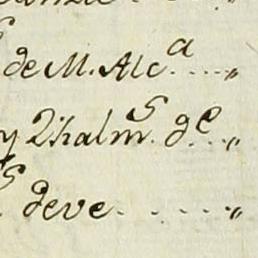 de M. Alc.ª ....„
y Qhalm.ˢ d.ᵉ ..„
deve. . ...„